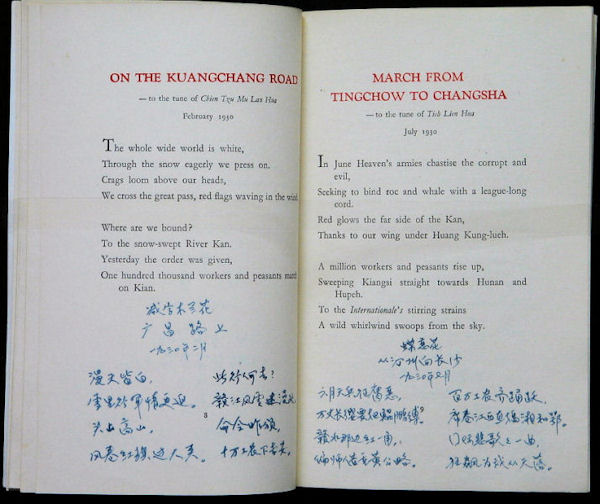 ON THE KUANGCHANG ROAD
—to the tune of Chien Tzu Mu Lan Hua
February 1930
The whole wide world is white,
Through the snow eagerly we press on.
Crags loom above our heads,
We cross the great pass, red flags waving in the wind.
Where are we bound?
To the snow-swept River Kan.
Yesterday the order was given,
One hundred thousand workers and peasants march
on Kian.
减字木兰花
广昌路上
一九三〇年二月
漫天皆白,
雪里行军情更迫。
头上高山,
风卷红旗过大关。
此行何去?
赣江风雪迷漫处。
命令昨颁,
十万工农下吉安。
3
MARCH FROM
TINGCHOW TO CHANGSHA
—to the tune of Tieh Lien Hua
July 1930
In June Heaven's armies chastise the corrupt and
evil,
Seeking to bind roc and whale with a league-long
cord.
Red glows the far side of the Kan,
Thanks to our wing under Huang Kung-lueh.
A million workers and peasants rise up,
Sweeping Kiangsi straight towards Hunan and
Hupeh.
To the Internationale's stirring strains
A wild whirlwind swoops from the sky.
蝶恋花
从汀州向长沙
一九三〇年七月
六月天兵征腐恶,
万丈长缨要把鲲鹏缚。
赣水那边红一角,
偏师借重黄公略。
百万工农齐踊跃,
席卷江西直捣湘和鄂。
悲歌一曲,
狂飙为我从天落。